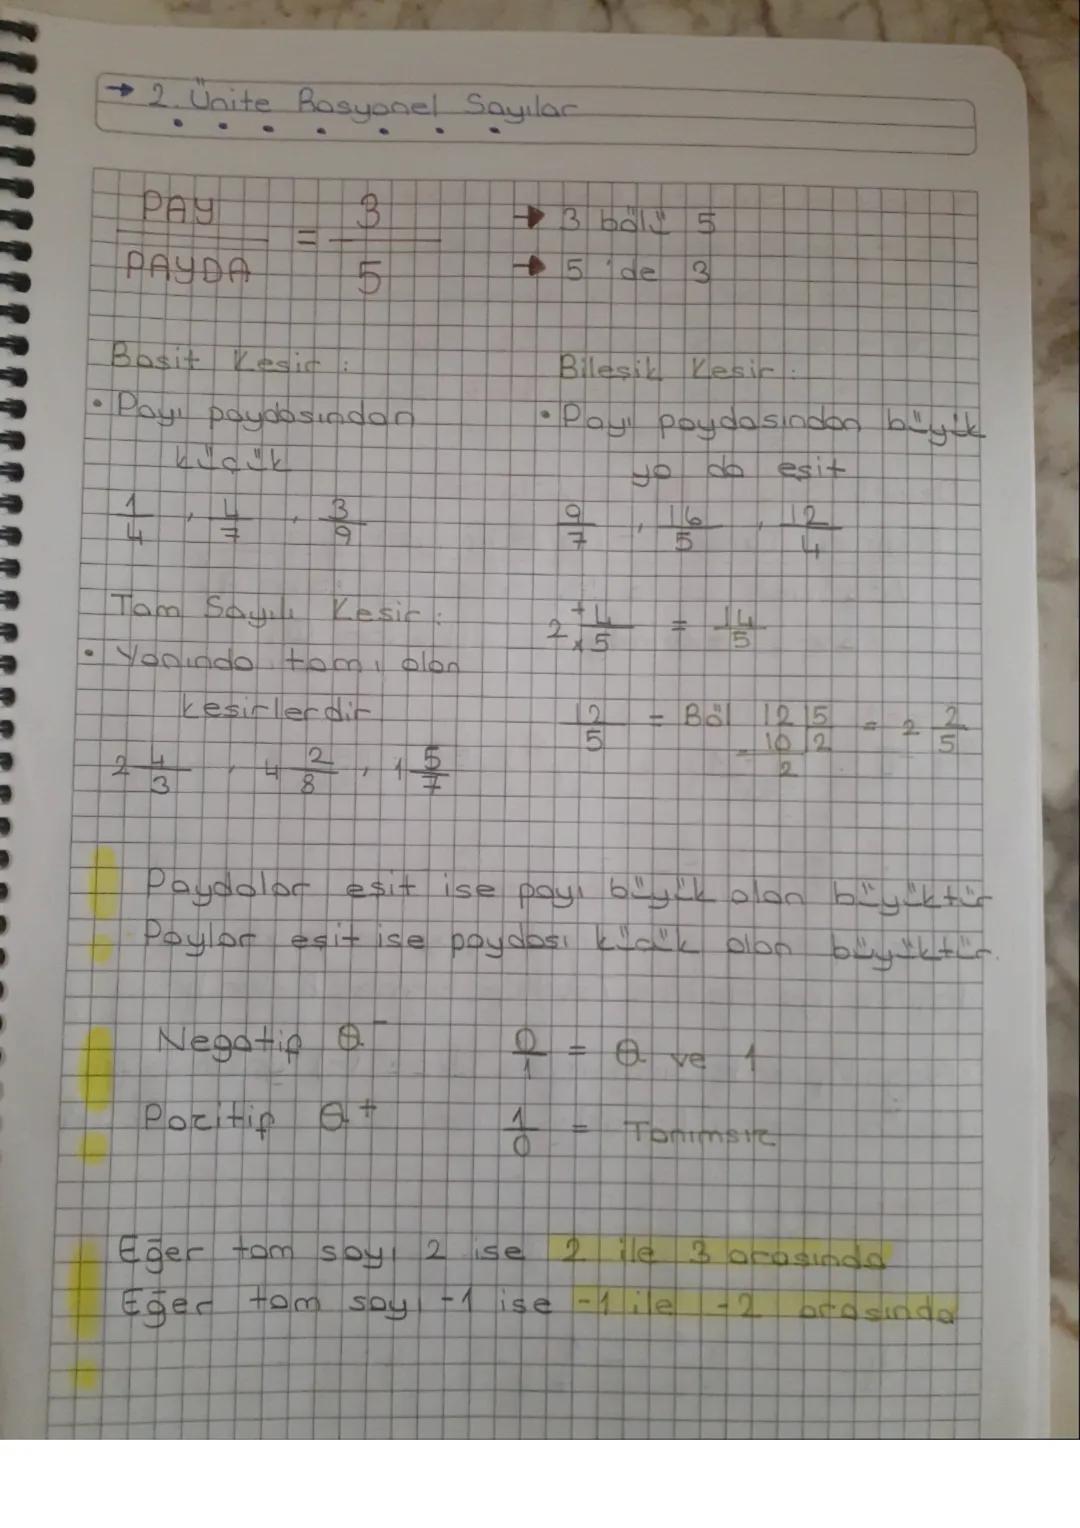 → 2. Ünite Rasyonel Sayılar
PAY / PAYDA = 3/5 → 3 bölü 5
→ 5'de 3
Basit Kesir :
• Payı paydasından
küçük
1/4 , 4/7 , 3/9
Bileşik Kesir :
• Payı paydasından büyük
ya da eşit
9/7 , 16/5 , 12/4
Tam Sayılı Kesir :
• Yanında tamı olan
kesirlerdir
2 4/3 , 4 2/8 , 1 5/7
2 +4/x5 = 14/5
12/5 = Böl 12 | 5 = 2 2/5
- 10 | 2
2
Paydalar eşit ise payı büyük olan büyüktür
Paylar eşit ise paydası küçük olan büyüktür.
Negatif Q⁻ 0/1 = 0 ve 1
Pozitif Q⁺ 1/0 = Tanımsız
Eğer tam sayı 2 ise 2 ile 3 arasında
Eğer tam sayı -1 ise -1 ile -2 arasında